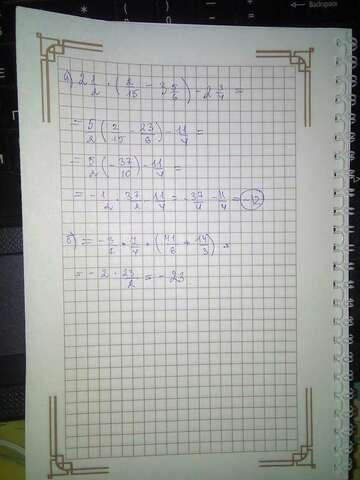 Backspace
а) 2 1/2 · (2/15 - 3 5/6) - 2 3/4 =
= 5/2 (2/15 - 23/6) - 11/4 =
= 5/2 (- 37/10) - 11/4 =
= - 1/2 · 37/2 - 11/4 = - 37/4 - 11/4 = -12
= - 2 · 23/2 = - 23